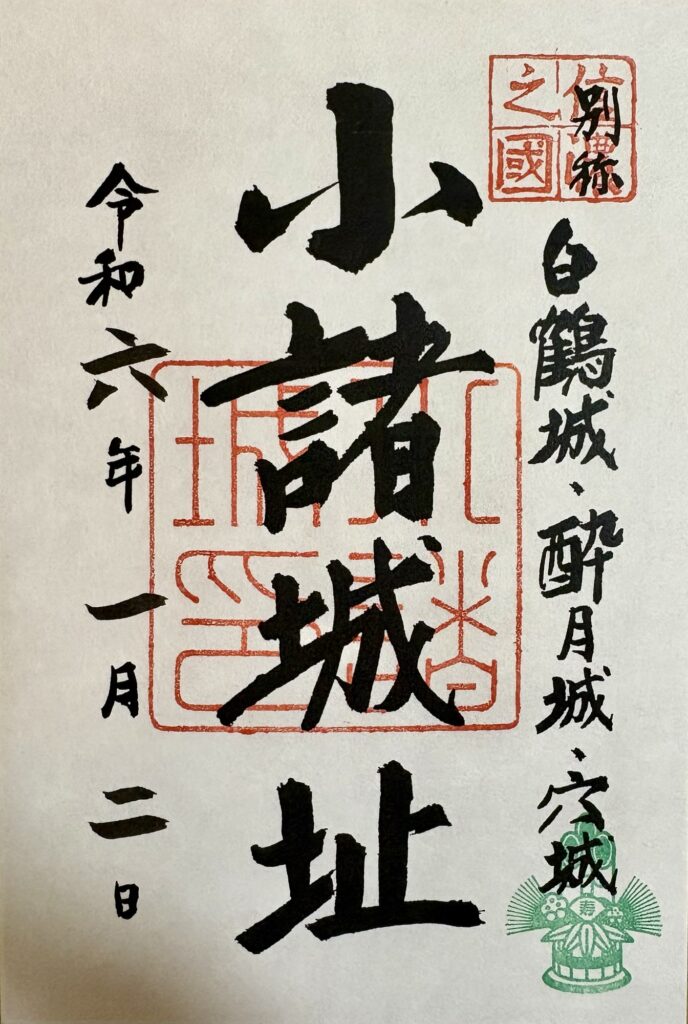 信濃之國
別称 白鶴城、酔月城、穴城
小諸城址
小諸城印
令和六年 一月 二日
寿